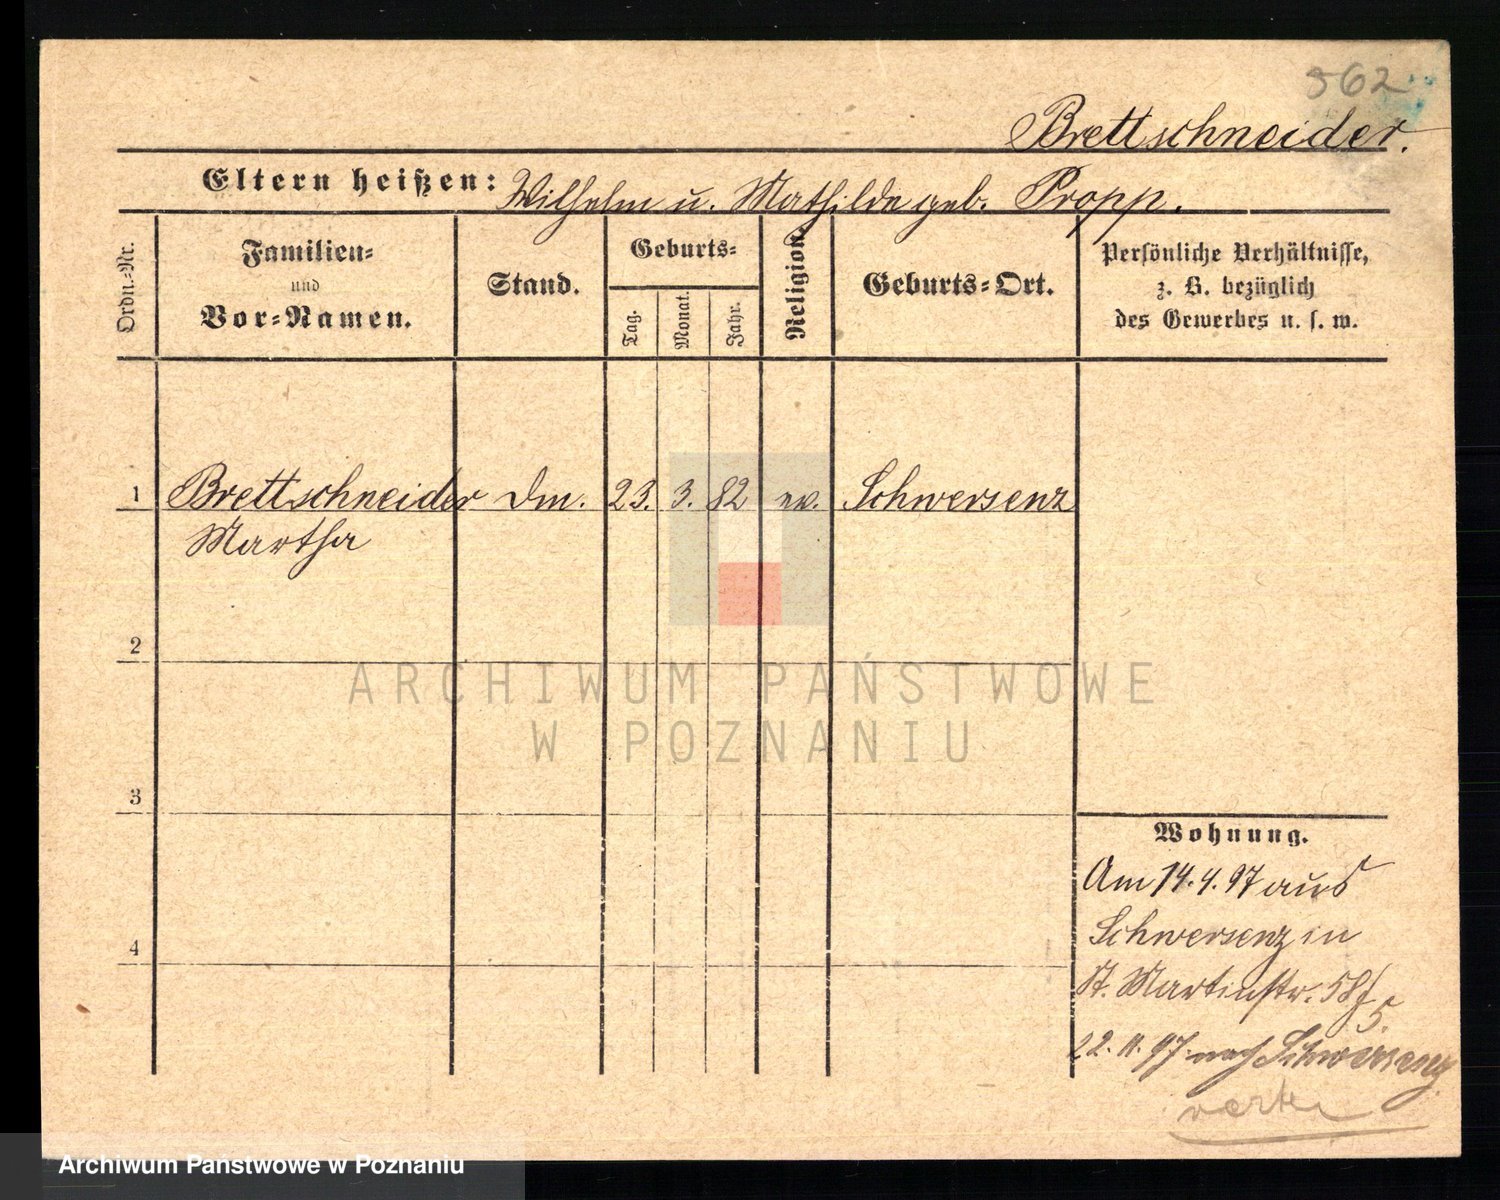 562
Brettschneider.
Eltern heißen: Wilhelm u. Mathilde geb. Propp.
Ordn.-Nr.
Familien- und Vor-Namen.
Stand.
Geburts-
Tag.
Monat.
Jahr.
Religion.
Geburts-Ort.
Persönliche Verhältnisse,
z. B. bezüglich
des Gewerbes u. s. w.
1 Brettschneider Dm. 23. 3. 82 ev. Schwersenz
Martha
2
3
4
Wohnung.
Am 14.4.97 aus
Schwersenz in
St. Martinstr. 58/
5.
22. 11. 97 nach Schwersenz
ARCHIWUM PAŃSTWOWE
W POZNANIU
Archiwum Państwowe w Poznaniu